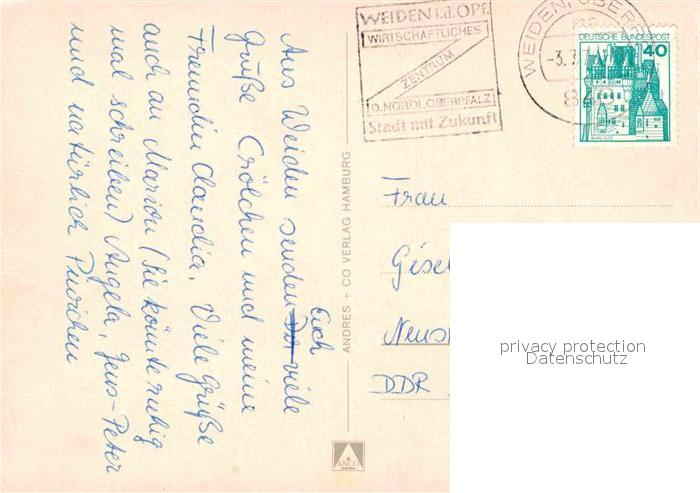 Aus Weiden senden Dir Euch viele
Grüße Crölchen und meine
Freundin Claudia. Viele Grüße
auch an Marion (Sie könnte ruhig
mal schreiben) Angela, Jens-Peter
und natürlich
ANDRES + CO VERLAG HAMBURG
ANCO
WEIDEN i.d.OPF.
WIRTSCHAFTLICHES
ZENTRUM
D. NORDL. OBERPFALZ
Stadt mit Zukunft
WEIDEN, OBERPF
-3.7.
DEUTSCHE BUNDESPOST
40
BURG ELTZ
Frau
Gisel
Neus
DDR
privacy protection
Datenschutz